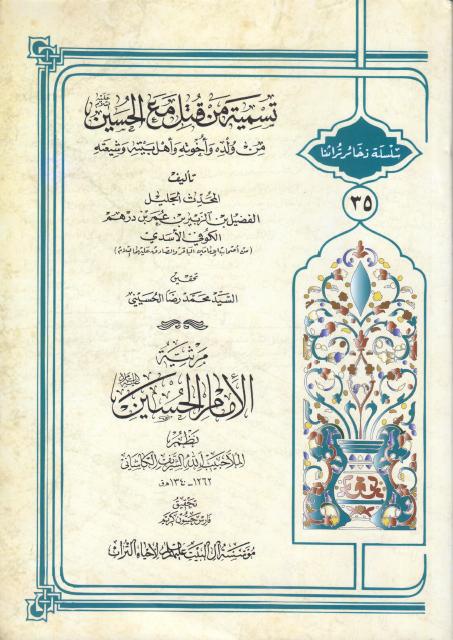 تسمية من قتل مع الحسين عليه السلام
من ولده وأخوته وأهل بيته وشيعته
تأليف
المحدث الجليل
الفضيل بن الزبير بن عمر بن درهم
الكوفي الأسدي
(من أصحاب الإمامين الباقر والصادق عليهما السلام)
تحقيق
السيد محمد رضا الحسيني
مرثية
الإمام الحسين
نظم
الملا حبيب الله الشريف الكاشاني
١٢٦٢ - ١٣٤٠ هـ ق
تحقيق
فارس حسون كريم
مؤسسة آل البيت عليهم السلام لإحياء التراث
سلسلة ذخائر تراثنا
٣٥